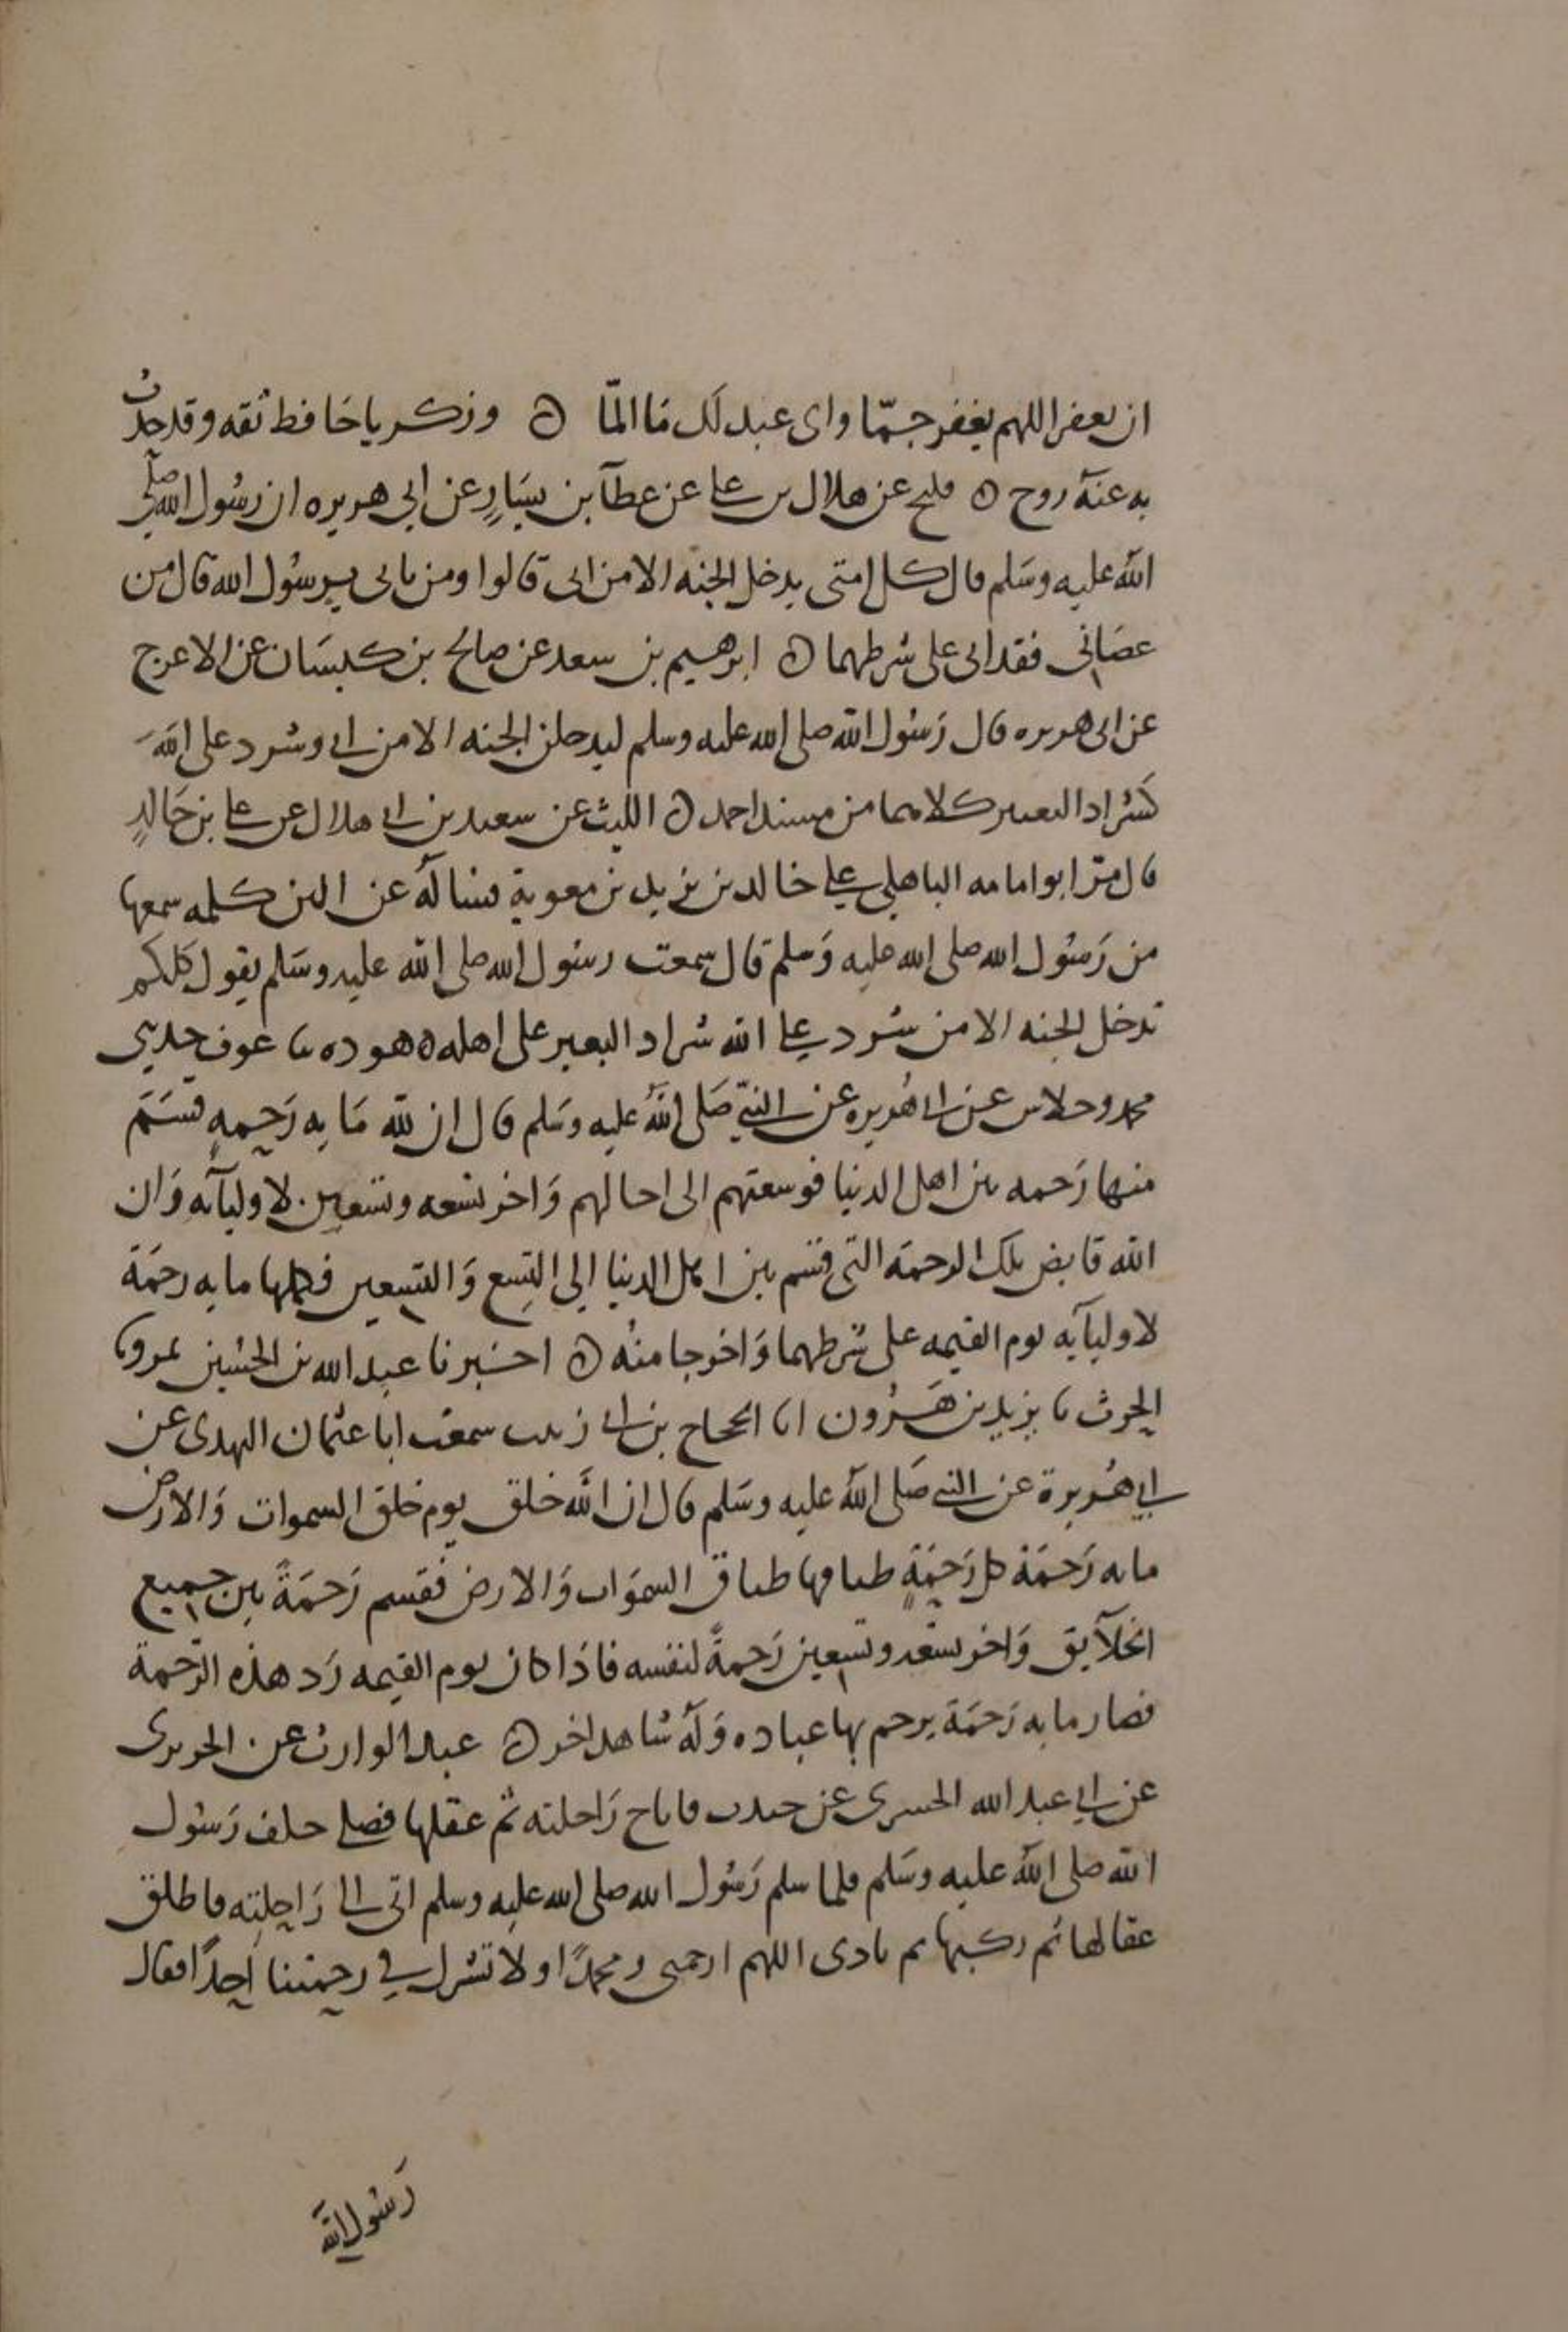 ان يعفر اللهم يغفر جمّا واى عبد لك ما المّا ه وزكريا حافظ ثقه وقد حدث
به عنه روح ه فليح عن هلال بن على عن عطآ بن يسارٍ عن ابي هريره ان رسول الله صلى
الله عليه وسلم قال كل امتى يدخل الجنه الا من ابى قالوا ومن يابى يرسول الله قال من
عصاني فقد ابى على شرطهما ه ابرهيم بن سعد عن صالح بن كيسان عن الاعرج
عن ابى هريره قال رسول الله صلى الله عليه وسلم ليدخلن الجنه الا من ابى وشرد على الله
كشراد البعير كلاهما من مسند احمد ه الليث عن سعيد بن ابى هلال عن على بن خالدٍ
قال مرّ ابو امامه الباهلي على خالد بن يزيد بن معوية فساله عن الين كلمه سمعها
من رسول الله صلى الله عليه وسلم قال سمعت رسول الله صلى الله عليه وسلم يقول كلكم
تدخل الجنه الا من شرد على الله شراد البعير على اهله ه هوده نا عوف حدثنى
محمد وخلاس عن ابى هُريره عن النبيّ صلى الله عليه وسلم قال ان لله مايه رحمه قسم
منها رحمه بين اهل الدنيا فوسعتهم الى اجالهم واخر تسعه وتسعين لاوليآئه وان
الله قابض تلك الرحمة التى قسم بين اهل الدنيا إلى التسع والتسعين فكملها مايه رحمة
لاوليآيه يوم القيمه على شرطهما واخرجا منه ه اخبرنا عبد الله بن الحسين بمرو نا
الحرث نا يزيد بن هرُون انا الحجاج بن ابى زينب سمعت ابا عثمان النهدى عن
ابي هُريرة عن النبي صلى الله عليه وسلم قال ان الله خلق يوم خلق السموات والارض
مايه رحمة كل رحمةٍ طباقها طباق السموات والارض فقسم رحمةً بين جميع
الخلآيق واخر تسعه وتسعين رحمةً لنفسه فاذا كان يوم القيمه رد هذه الرحمة
فصار مايه رحمة يرحم بها عباده وله شاهد اخر ه عبد الوارث عن الجريرى
عن ابي عبد الله الجسرى عن جندب فاناخ راحلته ثم عقلها فصلى خلف رسول
الله صلى الله عليه وسلم فلما سلم رسول الله صلى الله عليه وسلم اتى الى راحلته فاطلق
عقالها ثم ركبها ثم نادى اللهم ارحمنى ومحمدًا ولا تشرك في رحمتنا احدًا فقال
رسول الله